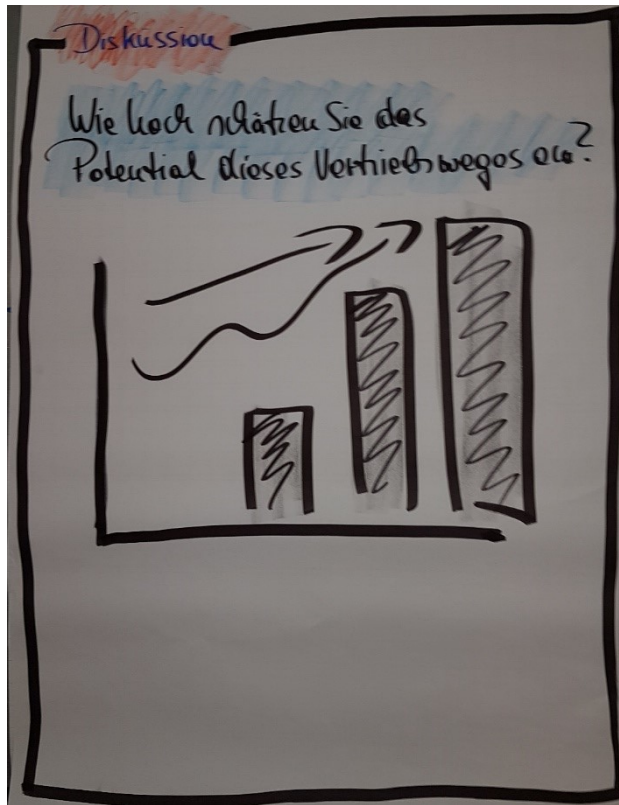 Diskussion
Wie hoch schätzen Sie das
Potential dieses Vertriebsweges ein?